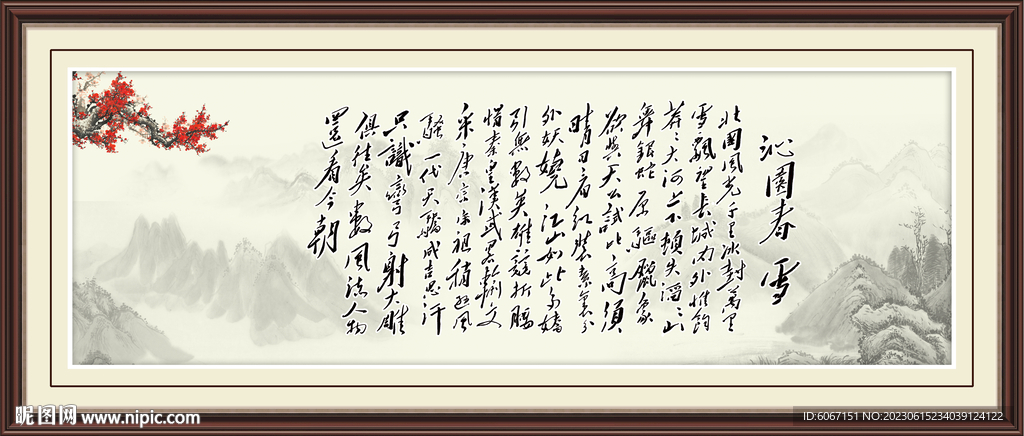 沁園春 雪
北國風光千里冰封萬里
雪飄望長城内外惟餘
莽々大河上下頓失滔々山
舞銀蛇原驅臘象
欲與天公試比高須
晴日看紅裝素裹分
外妖嬈江山如此多嬌
引無數英雄競折腰
惜秦皇漢武略輸文
采唐宗宋祖稍遜風
騷一代天驕成吉思汗
只識彎弓射大雕
俱往矣數風流人物
還看今朝
昵图网 www.nipic.com
ID:6067151 NO:20230615234039124122